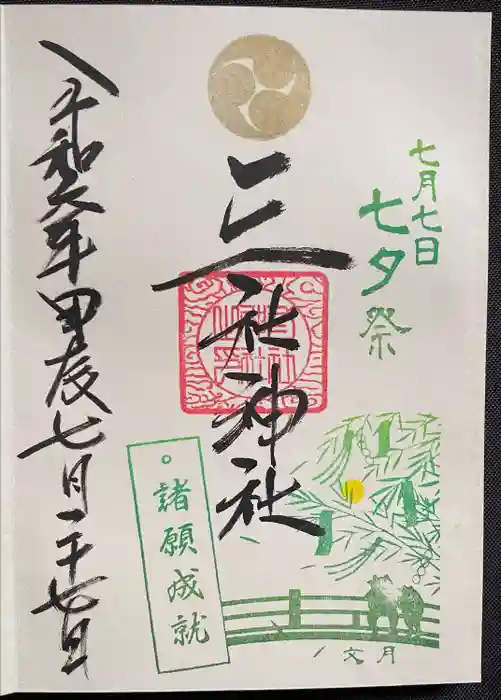 七月七日
七夕祭
三社神社
諸願成就
文月
令和六年甲辰七月二十七日